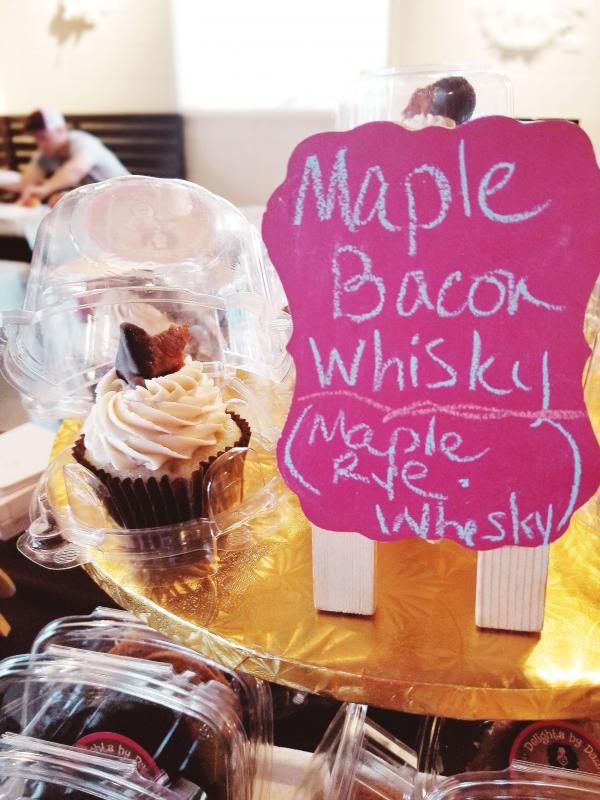 Maple
Bacon
Whisky
(Maple
Rye
Whisky)
Delights by
Delights by